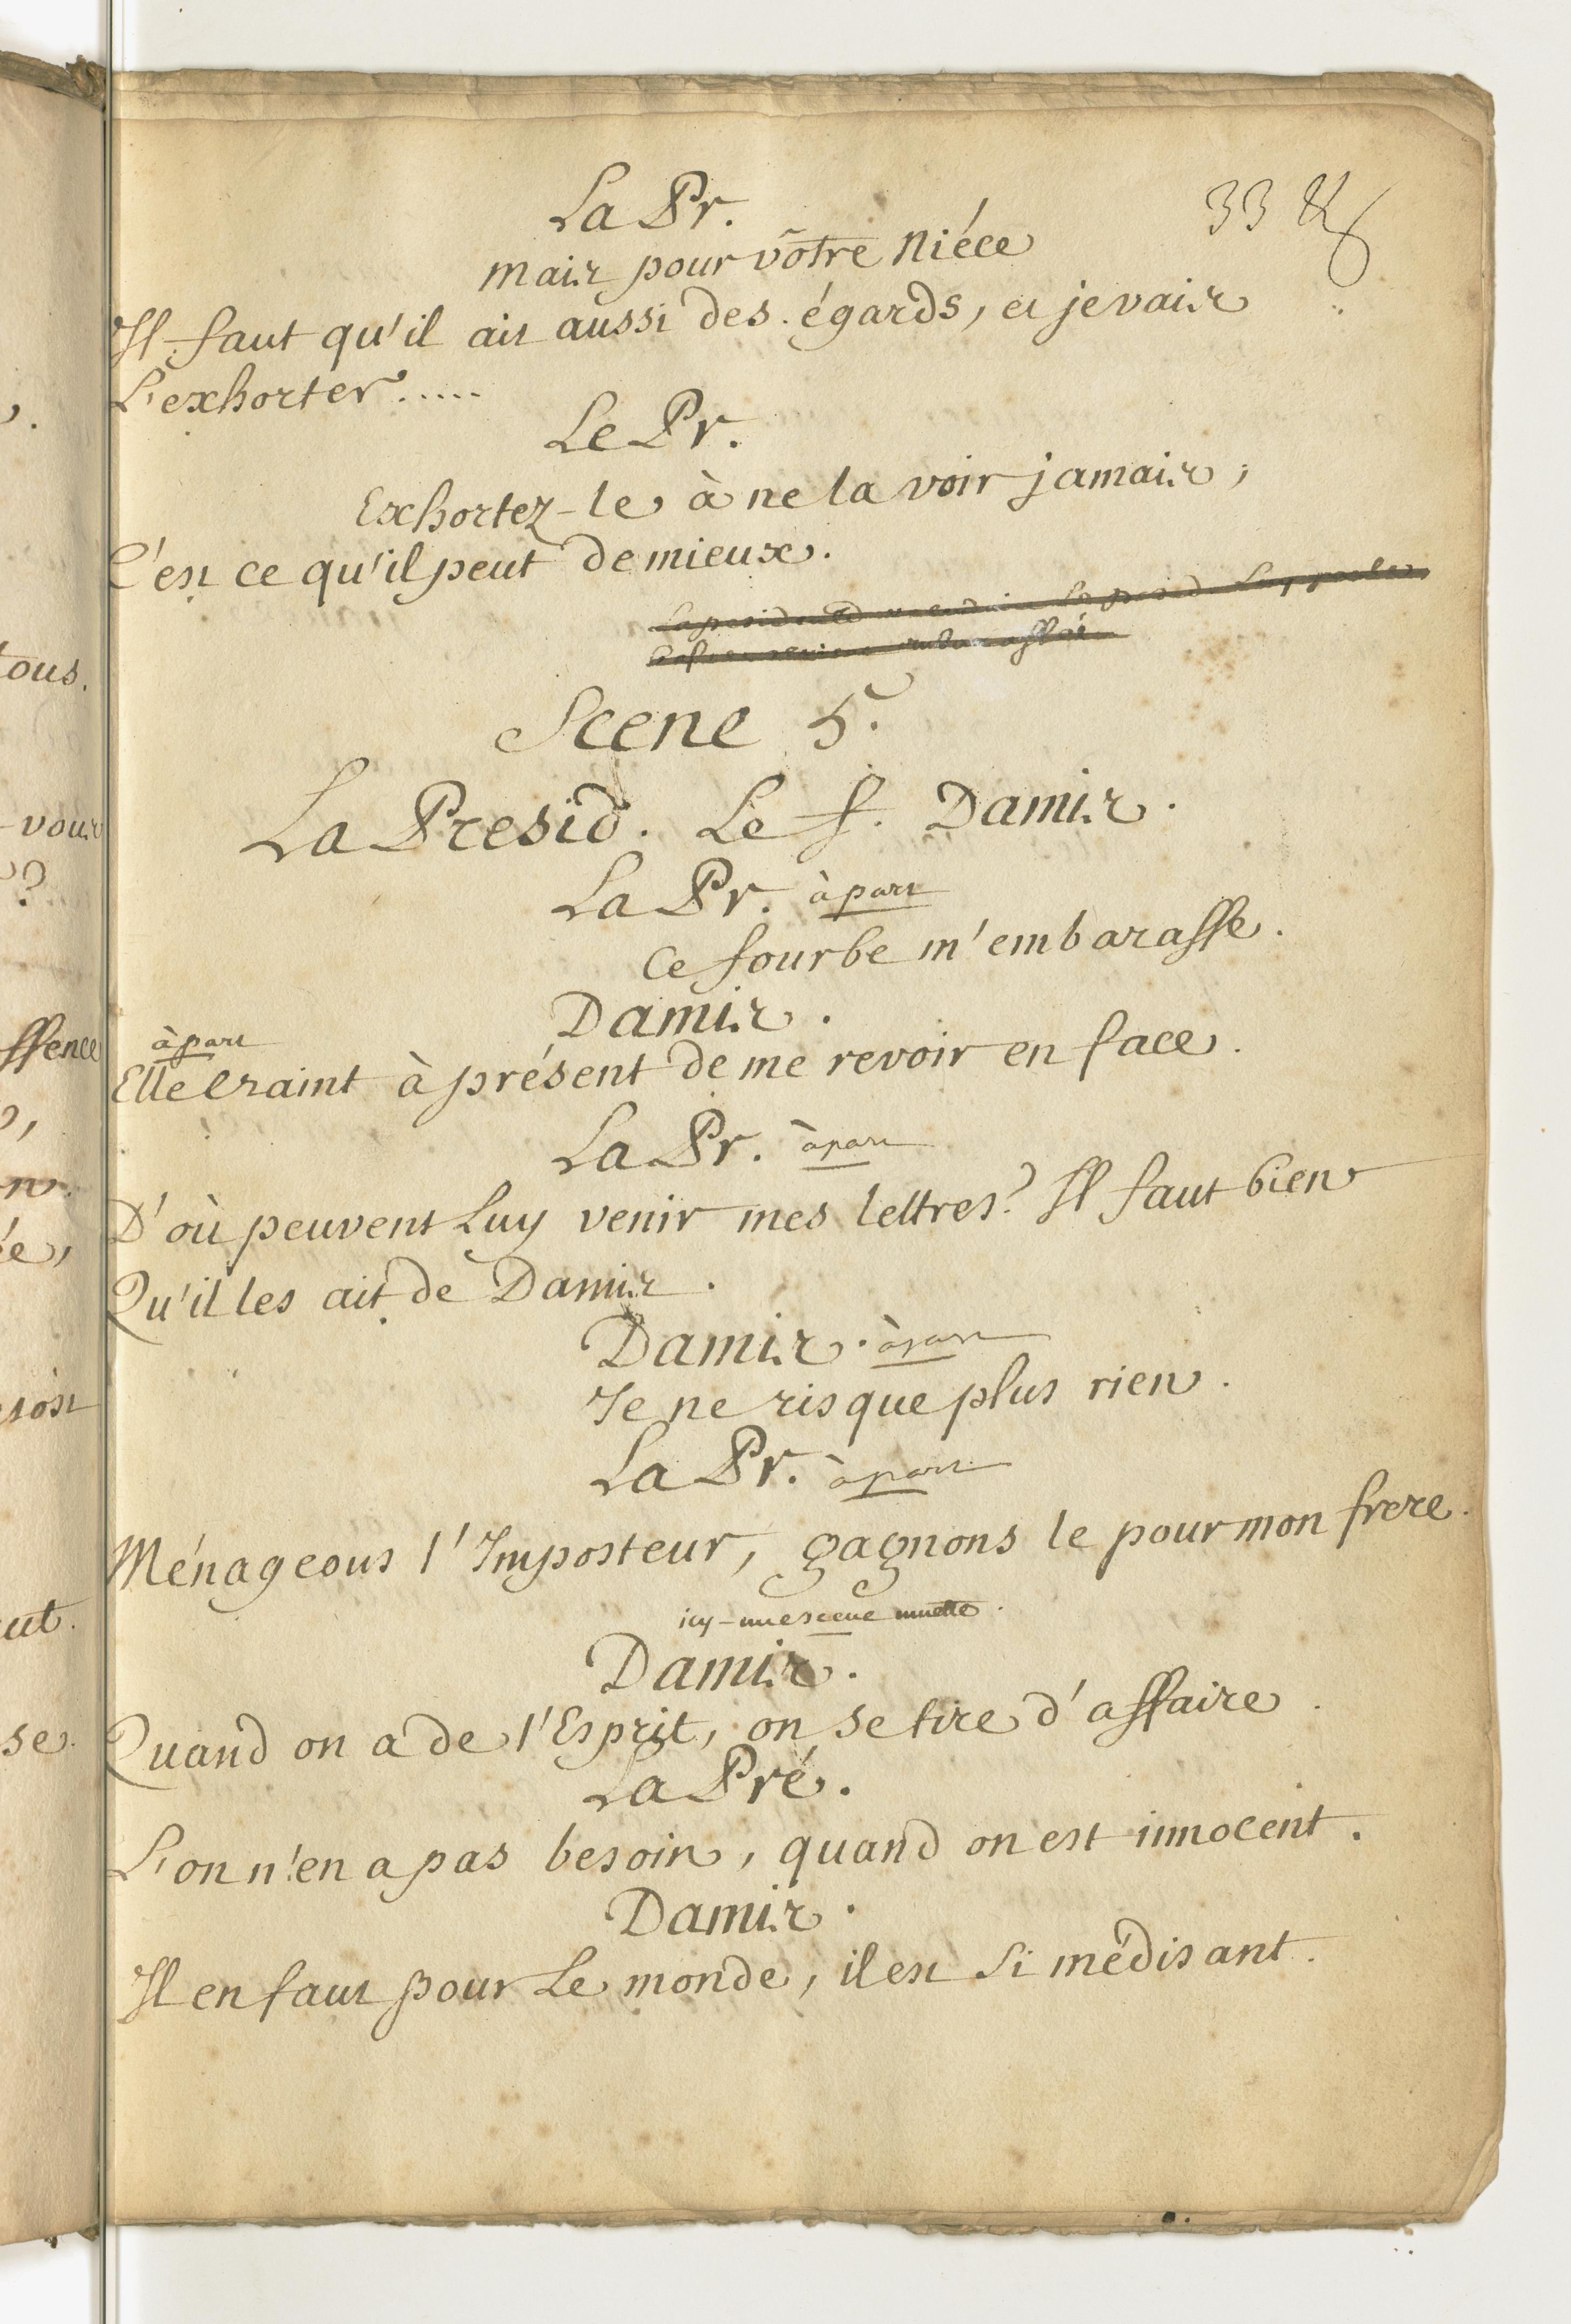 33
La Pr.
mais pour vôtre Niéce
Il faut qu'il ait aussi des égards, et je vais
L'exhorter .....
Le Pr.
Exhortez-le à ne la voir jamais,
C'est ce qu'il peut de mieux.
Scene 5.
La Presid. Le f. Damis.
La Pr. à part
Ce fourbe m'embarasse.
Damis.
à part
Elle craint à présent de me revoir en face.
La Pr. à part
D'où peuvent Luy venir mes lettres? Il faut bien
Qu'il les ait de Damis.
Damis. à part
Je ne risque plus rien.
La Pr. à part
Ménageons l'Imposteur, gagnons le pour mon frere.
icy une scene muette.
Damis.
Quand on a de l'Esprit, on se tire d'affaire.
La Pré.
L'on n'en a pas besoin, quand on est innocent.
Damis.
Il en faut pour Le monde, il est si médisant.
tous.
vous
?
ut.
se.